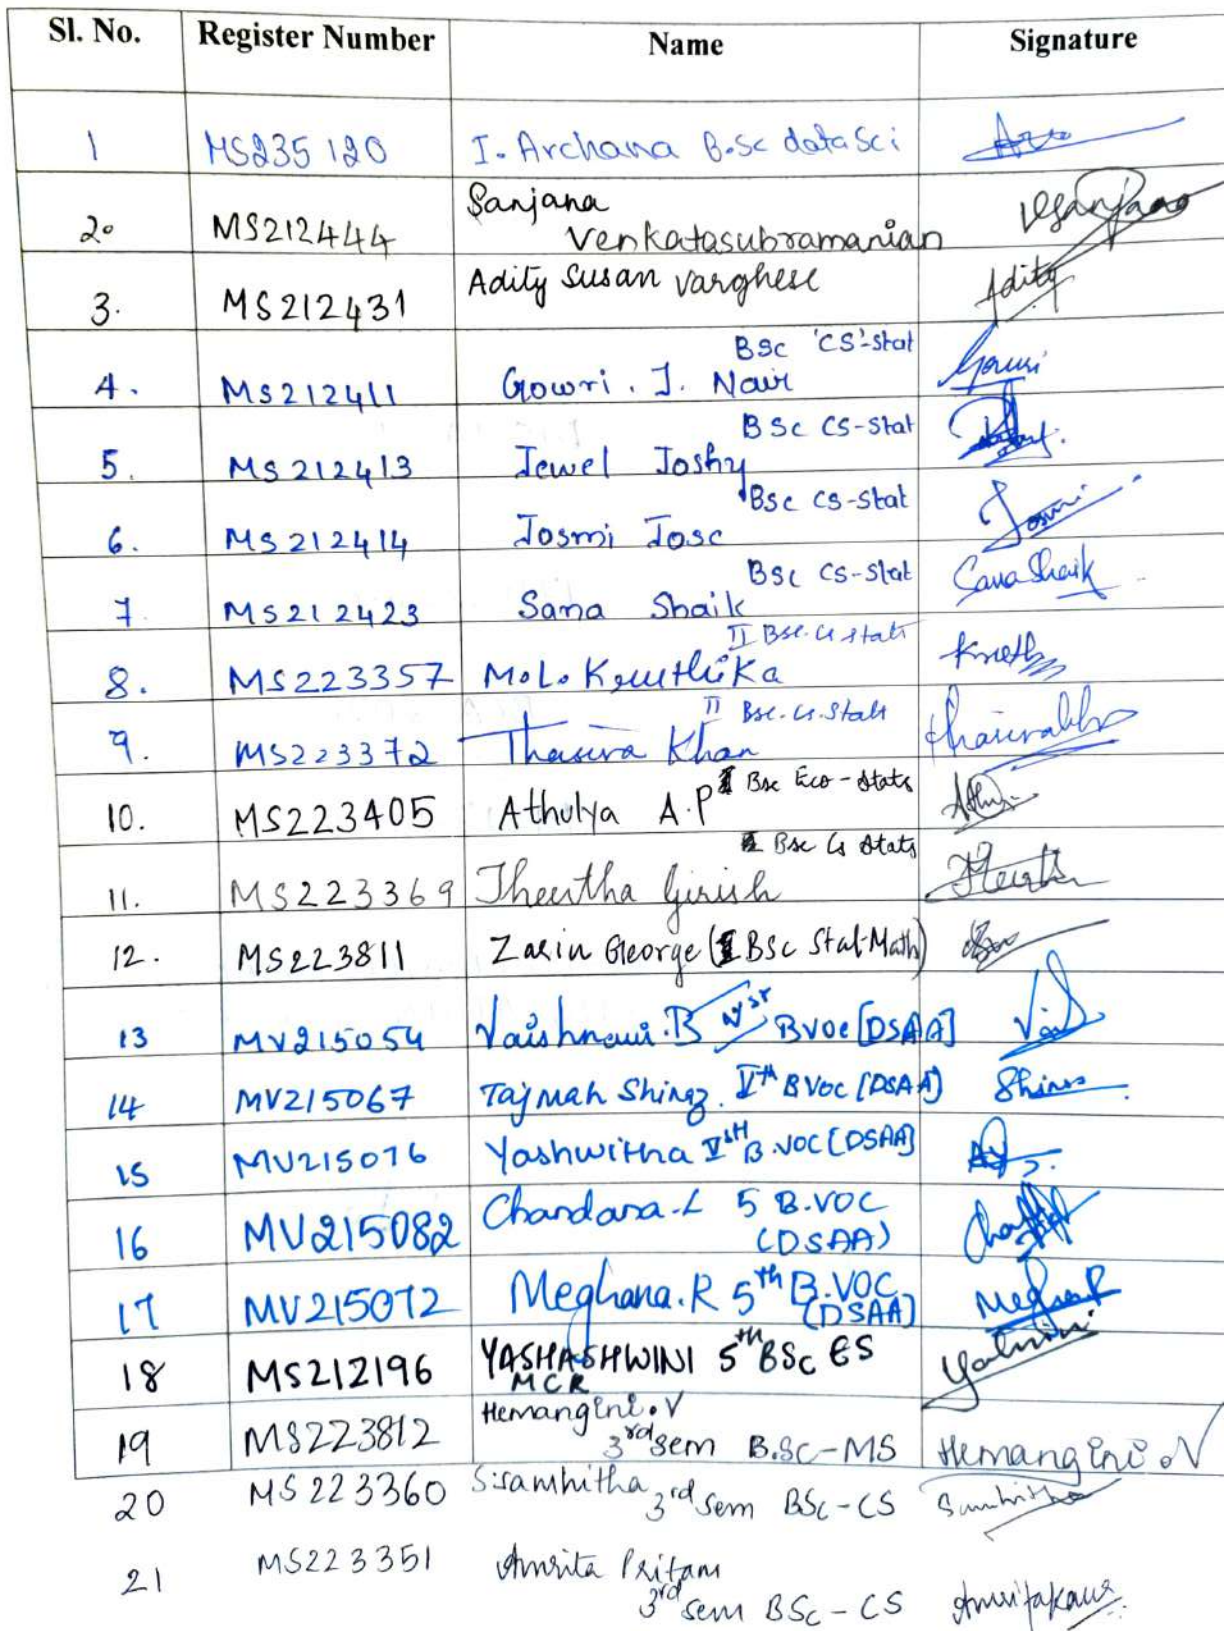 Sl. No. Register Number Name Signature
1 MS235120 I. Archana B.Sc data Sci
2. MS212444 Sanjana Venkatasubramanian
3. MS212431 Adity Susan Varghese Adity
BSc 'CS'-Stat
4. MS212411 Gowri. J. Nair Gowri
BSc CS-Stat
5. MS212413 Jewel Joshy
BSc CS-Stat
6. MS212414 Josmi Jose Josmi
BSc CS-Stat
7. MS212423 Sana Shaik Sana Shaik
II BSc. Cs Stats
8. MS223357 M.L. Kruthika
II BSc. Cs. Stats
9. MS223372 Thasira Khan
10. MS223405 Athulya A.P Bsc Eco-Stats
Bsc Cs Stats
11. MS223369 Theertha Girish
12. MS223811 Zarin George ( BSc Stat-Math)
13 MV215054 Vaishnavi.B BVOC [DSAA]
14 MV215067 Tajmah Shiraz. Vth BVOC [DSAA]
15 MV215076 Yashwitha B.VOC [DSAA]
16 MV215082 Chandana.L 5 B.VOC
(DSAA)
17 MV215072 Meghana.R 5th B.VOC
(DSAA)
18 MS212196 YASHASHWINI 5th BSc ES
MCR
19 MS223812 Hemangini.V
3rd sem B.Sc-MS Hemangini.V
20 MS223360 S.Samhitha 3rd Sem BSc-CS Samhitha
21 MS223351 Amrita Pritam
3rd sem BSc-CS Amritakaur